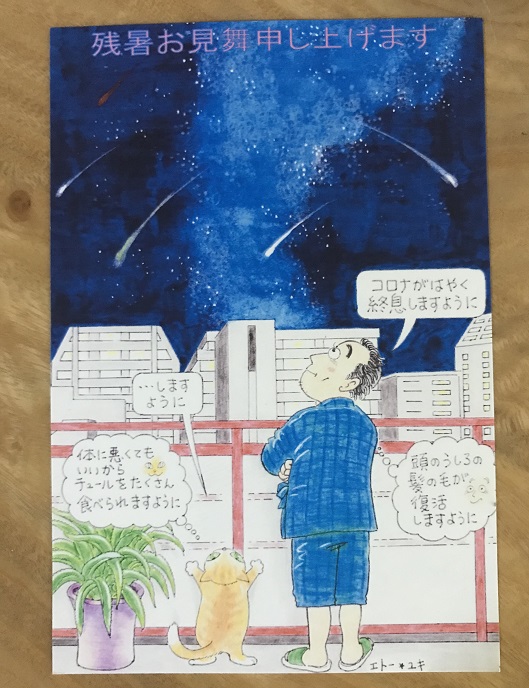 残暑お見舞申し上げます
コロナがはやく
終息しますように
…します
ように
体に悪くても
いいから
チュールをたくさん
食べられますように
頭のうしろの
髪の毛が
復活
しますように
エトー★ユキ